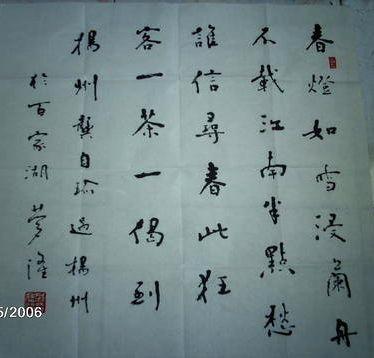 春燈如雪浸蘭舟
不載江南半點愁
誰信尋春此狂
客一茶一偈到
揚州龔自珍過揚州
於百家湖
5/2006